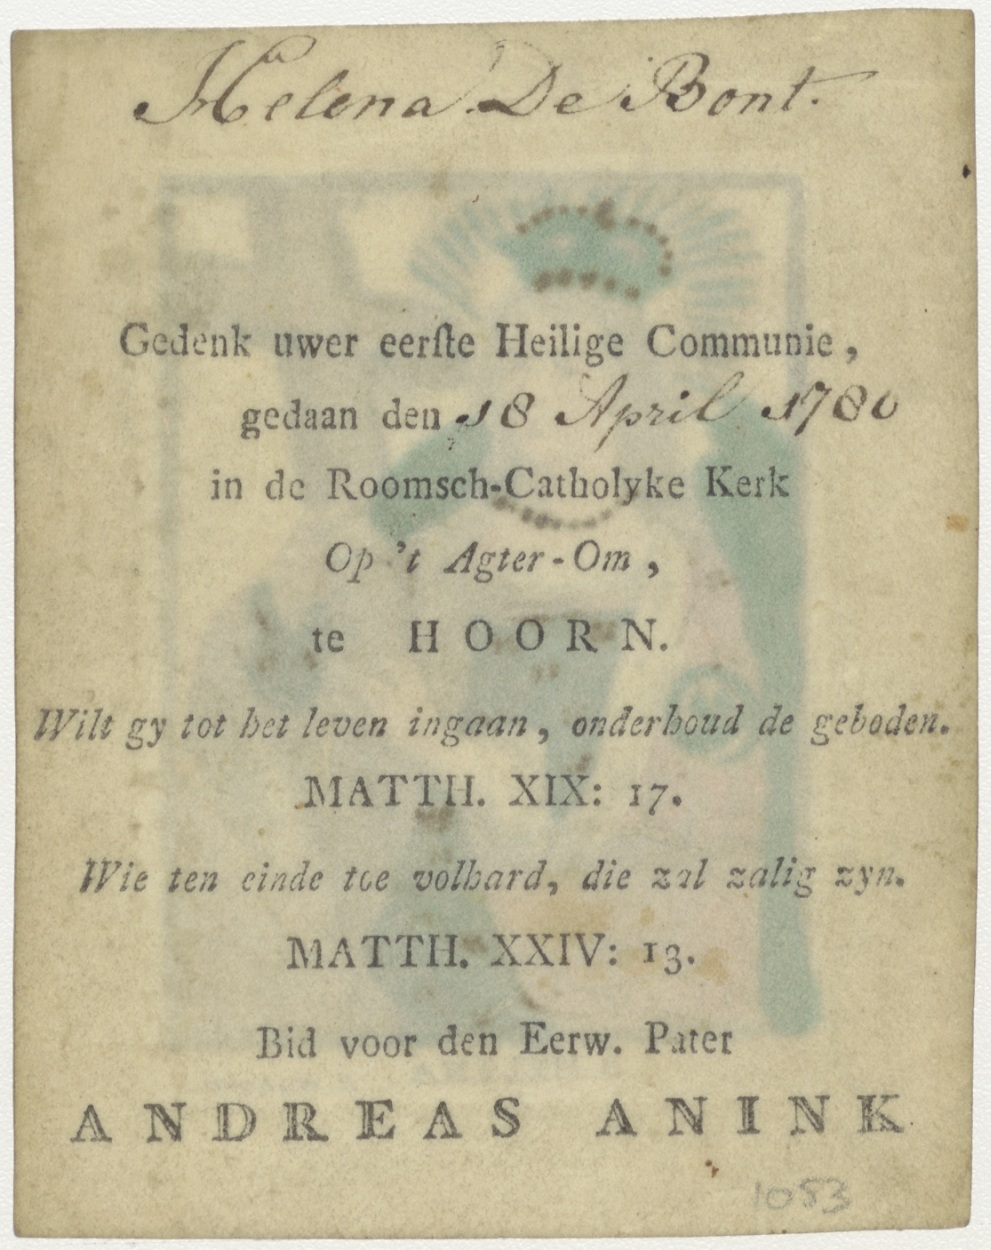 Helena De Bont.
Gedenk uwer eerſte Heilige Communie,
gedaan den 18 April 1780
in de Roomsch-Catholyke Kerk
Op 't Agter-Om,
te HOORN.
Wilt gy tot het leven ingaan, onderhoud de geboden.
MATTH. XIX: 17.
Wie ten einde toe volhard, die zal zalig zyn.
MATTH. XXIV: 13.
Bid voor den Eerw. Pater
ANDREAS ANINK
1053